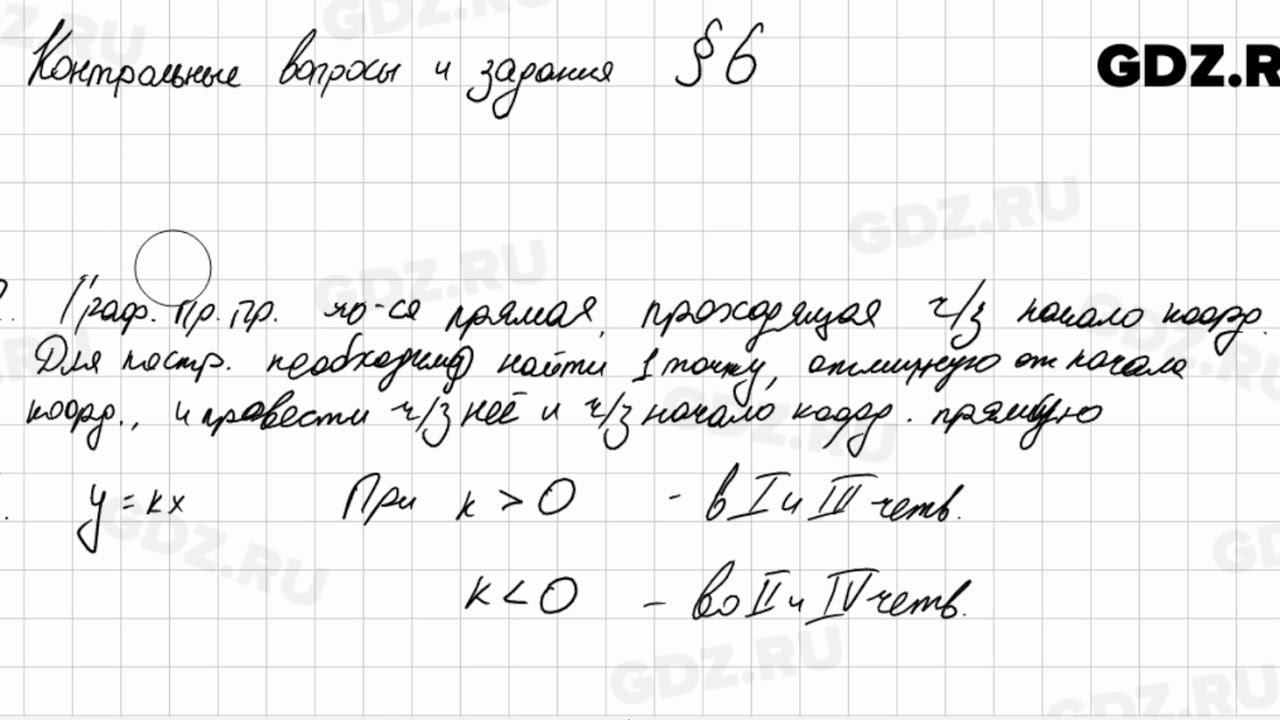 Контрольные вопросы и задания § 6
GDZ.R
2. Граф. пр. пр. яв-ся прямая, проходящая ч/з начало коорд.
Для постр. необходимо найти 1 точку, отличную от начала
коорд., и провести ч/з неё и ч/з начало коорд. прямую
y = kx При k > 0 - в I и III четв.
k < 0 - во II и IV четв.
GDZ.RU
GDZ.RU
GDZ.RU
GDZ.RU
GDZ.RU